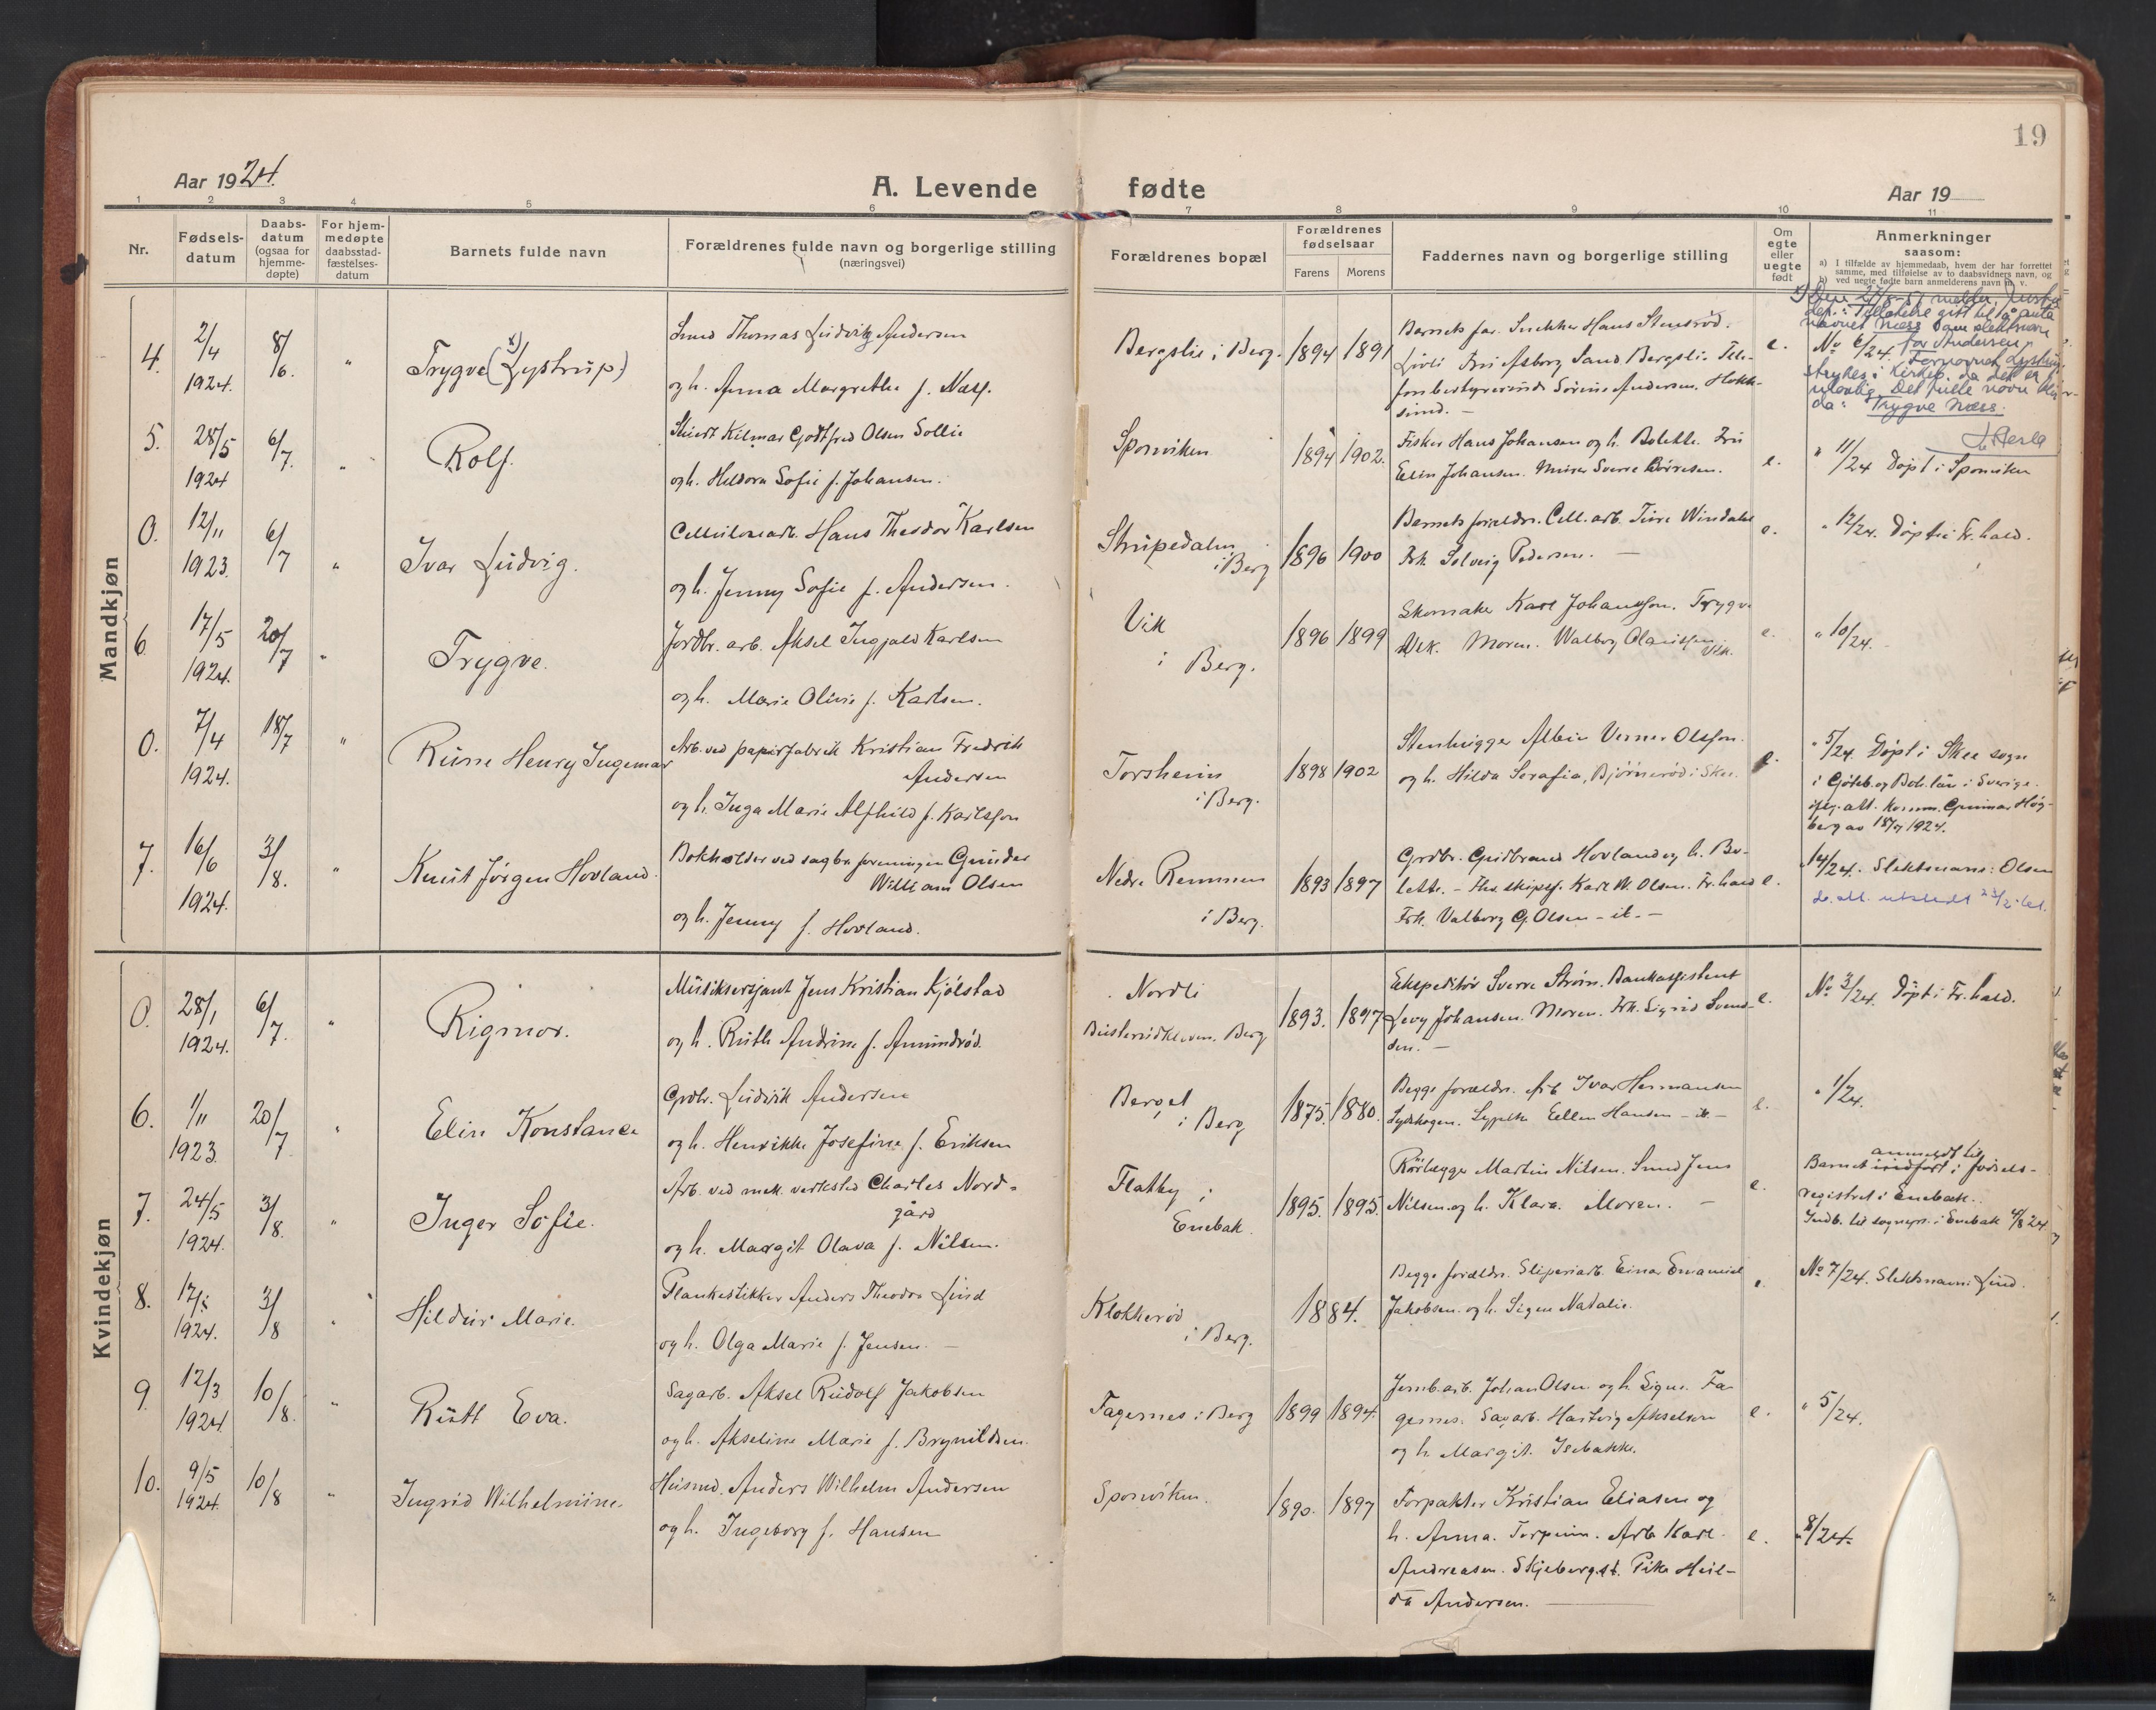 19
Aar 1924.
A. Levende fødte
Aar 19
1 2 3 4 5 6 7 8 9 10 11
Nr.
Fødsels-
datum
Daabs-
datum
(ogsaa for
hjemme-
døpte)
For hjem-
medøpte
daabsstad-
fæstelses-
datum
Barnets fulde navn
Forældrenes fulde navn og borgerlige stilling
(næringsvei)
Forældrenes bopæl
Forældrenes
fødselsaar
Farens Morens
Faddernes navn og borgerlige stilling
Om
egte
eller
uegte
født
Anmerkninger
saasom:
a) I tilfælde av hjemmedaab, hvem der har forrettet
samme, med tilføielse av to daabsvidners navn, og
b) ved uegte fødte barn anmelderens navn m. v.
Mandkjøn
4. 2/4 1924. 8/6. "
Trygve (Lystrup)
Smed Thomas Ludvig Andersen
og h. Anna Margrethe f. Næss.
Bergslie i Berg.
1894 1891
Barnets far. Snekker Hans Stensrød.
Fru Asborg Sand Bergsli. Tele-
fonbestyrerinde Sörine Andersen. Hokk-
sund. -
e.
Den 27/8-51 melder Justis
dep.: Tillatelse gitt til å anta
navnet Næss som slektsnavn
for Andersen
No 6/24. Fornavnet Lystrup
strykes i Kirkeb. da det er
ulovlig. Det fulle navn blir
da: Trygve Næss.
5. 28/5 1924 6/7. "
Rolf.
Stuert Kilmar Godtfred Olsen Sollie
og h. Heldora Sofie f. Johansen.
Sponviken
1894 1902.
Fisker Hans Johansen og h. Bolette. Fru
Elin Johansen. Murer Sverre Børresen.
e.
" 11/24 Døpt i Sponviken
0. 12/11 1923. 6/7 "
Ivar Ludvig.
Cellulosearb. Hans Theodor Karlsen
og h. Jenny Sofie f. Andersen.
Strupedalen
i Berg
1896 1900
Barnets forældre. Cell. arb. Ture Windahl
Frk. Solveig Pedersen. -
e.
" 12/24. Døpt i Fr.hald.
6 17/5 1924. 20/7 "
Trygve.
Jordbr. arb. Aksel Ingjald Karlsen
og h. Marie Olivie f. Karlsen.
Vik
i Berg.
1896 1899
Skomaker Karl Johansson. Trygve
Vik. Moren. Walborg Olaussen Vik.
e.
" 10/24.
0. 7/4 1924. 18/7 "
Rune Henry Ingemar
Arb. ved papirfabrik Kristian Fredrik
Andersen
og h. Inga Marie Alfhild f. Karlsson
Torsheim
i Berg.
1898 1902
Stenhugger Albin Verner Olsson.
og h. Hilda Serafia, Bjørnerød i Skee.
e.
" 5/24. Døpt i Skee sogn
i Göteb. og Boh. län i Sverige.
ifølg. att. komm. Gunnar Hög-
berg av 18/7 1924.
7. 16/6 1924. 3/8. "
Knut Jørgen Hovland.
Bokholder ved sagbr. foreningen Gunder
William Olsen
og h. Jenny f. Hovland.
Nedre Remmen
i Berg.
1893 1897
Grdbr. Guldbrand Hovland og h. Bo-
lette. - Fhv. skipsf. Karl W. Olsen. Fr.hald
Frk. Valborg G. Olsen - it. -
e.
" 14/24. Slektsnavn: Olsen
Kvindekjøn
0. 28/1 1924. 6/7. "
Rigmor.
Musiksersjant Jens Kristian Kjølstad
og h. Ruth Andrine f. Amundrød.
Nordli
Berg
1893. 1897
Ekspeditör Sverre Ström. Bankassistent
Levy Johansen. Moren. Frk. Sigrid Svend-
sen. -
e.
No 3/24. Døpt i Fr.hald.
6. 1/11 1923. 20/7. "
Elin Konstance
Grdbr. Ludvik Andersen
og h. Henrikke Josefine f. Eriksen
Berget
i Berg
1875. 1880.
Begge forældre. Arb. Ivar Hermansen
Sydskogen. Sypike Ellen Hansen - it -
e.
" 1/24.
7. 24/5 1924. 3/8. "
Inger Sofie.
Arb. ved mek. verksted Charles Nord-
gård
og h. Margit Olava f. Nilsen.
Flatby i
Enebak.
1895. 1895.
Rörlægger Martin Nilsen. Smed Jens
Nilsen og h. Klara. Moren. -
e.
anmeldt til
Barnet indført i fødsels-
registret i Enebak.
Indb. til sognepr. i Enebak 4/8 24.
8. 1924. 3/8 "
Hildur Marie.
Plankestikker Anders Theodor Lind
og h. Olga Marie f. Jensen. -
Klokkerød
i Berg.
1884.
Begge forældre. Sliperiarb. Einar Emanuel
Jakobsen og h. Signe Natalie.
e.
No 7/24. Slektsnavn: Lind.
9. 12/3 1924. 10/8. "
Ruth Eva.
Sagarb. Aksel Rudolf Jakobsen
og h. Akseline Marie f. Brynildsen.
Fagernes i Berg
1899 1894.
Jernb. arb. Johan Olsen og h. Signe. Fa-
gernes. Sagarb. Hartvig Akselsen
og h. Margit. Isebakke.
e.
" 5/24.
10. 9/5 1924. 10/8 "
Ingrid Wilhelmine.
Husmd. Anders Wilhelm Andersen
og h. Ingeborg f. Hansen
Sponviken.
1890. 1897
Forpakter Kristian Eliasen og
h. Anna. Torpum. Arb. Karl
Andreasen. Skjebergst. Pike Hul-
da Andersen.
e.
" 8/24.